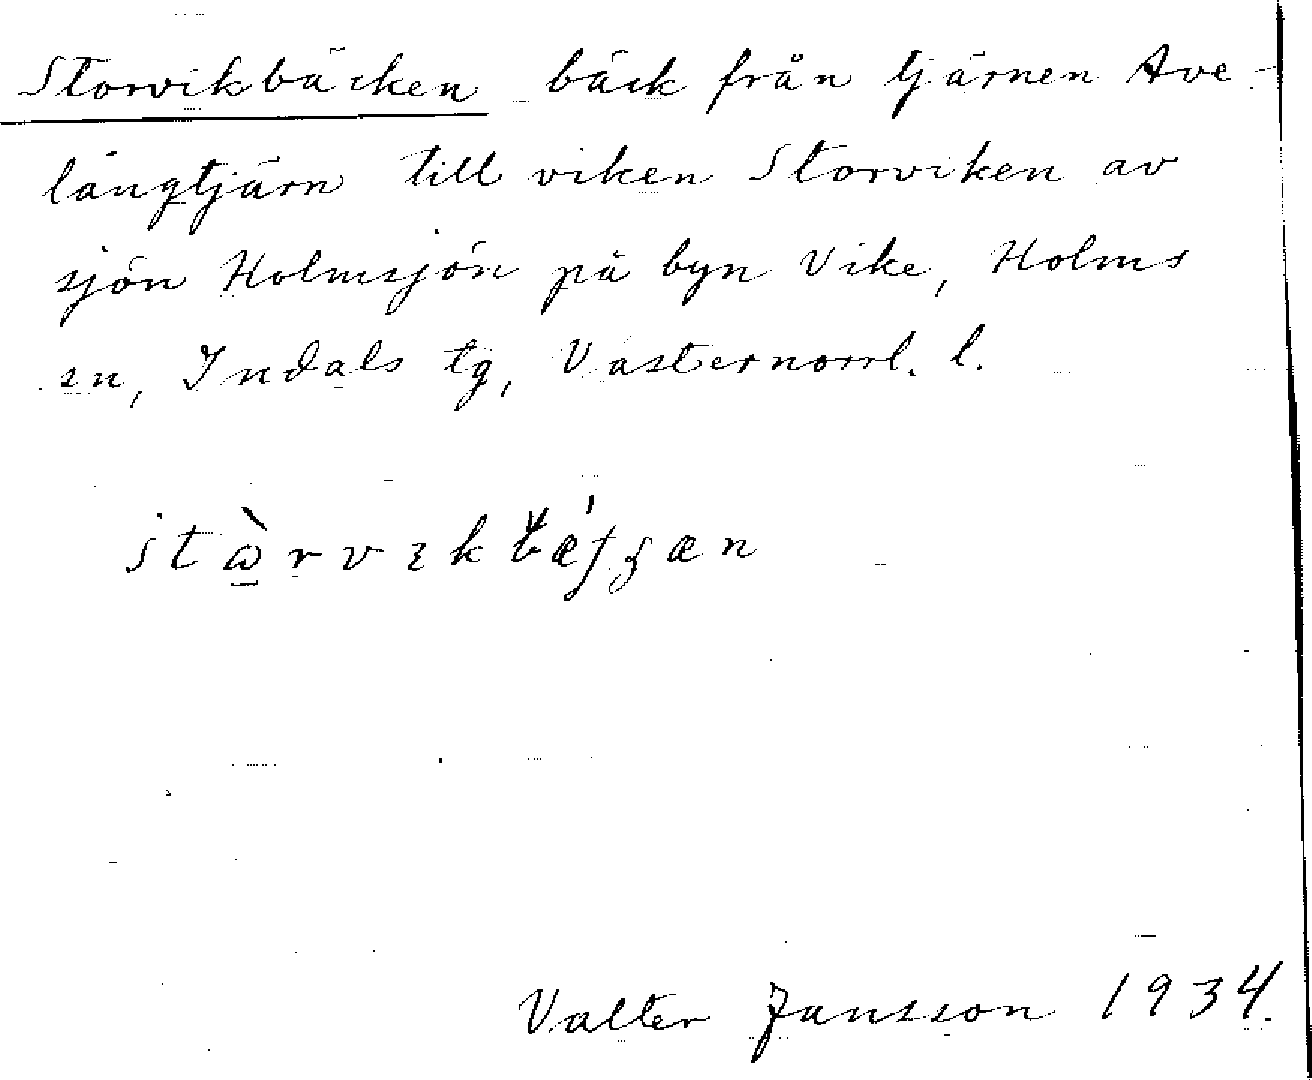 Storvikbäcken bäck från tjärnen Ave-
långtjärn till viken Storviken av
sjön Holmsjön på byn Vike, Holms
sn, Indals tg, Västernorrl. l.
Valter Jansson 1934.